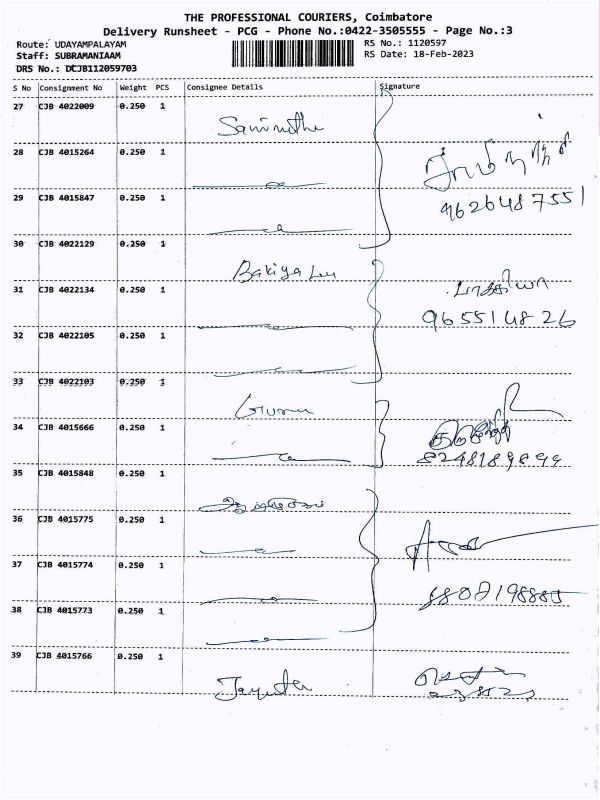 THE PROFESSIONAL COURIERS, Coimbatore
Delivery Runsheet - PCG - Phone No.:0422-3505555 - Page No.:3
Route: UDAYAMPALAYAM RS No.: 1120597
Staff: SUBRAMANIAAM RS Date: 18-Feb-2023
DRS No.: DCJB112059703
S No Consignment No Weight PCS Consignee Details Signature
27 CJB 4022009 0.250 1
28 CJB 4015264 0.250 1
29 CJB 4015847 0.250 1
9626487551
30 CJB 4022129 0.250 1
Bakiya
31 CJB 4022134 0.250 1
9655148 26
32 CJB 4022105 0.250 1
33 CJB 4022103 0.250 1
34 CJB 4015666 0.250 1
35 CJB 4015848 0.250 1
36 CJB 4015775 0.250 1
37 CJB 4015774 0.250 1
38 CJB 4015773 0.250 1
39 CJB 4015766 0.250 1